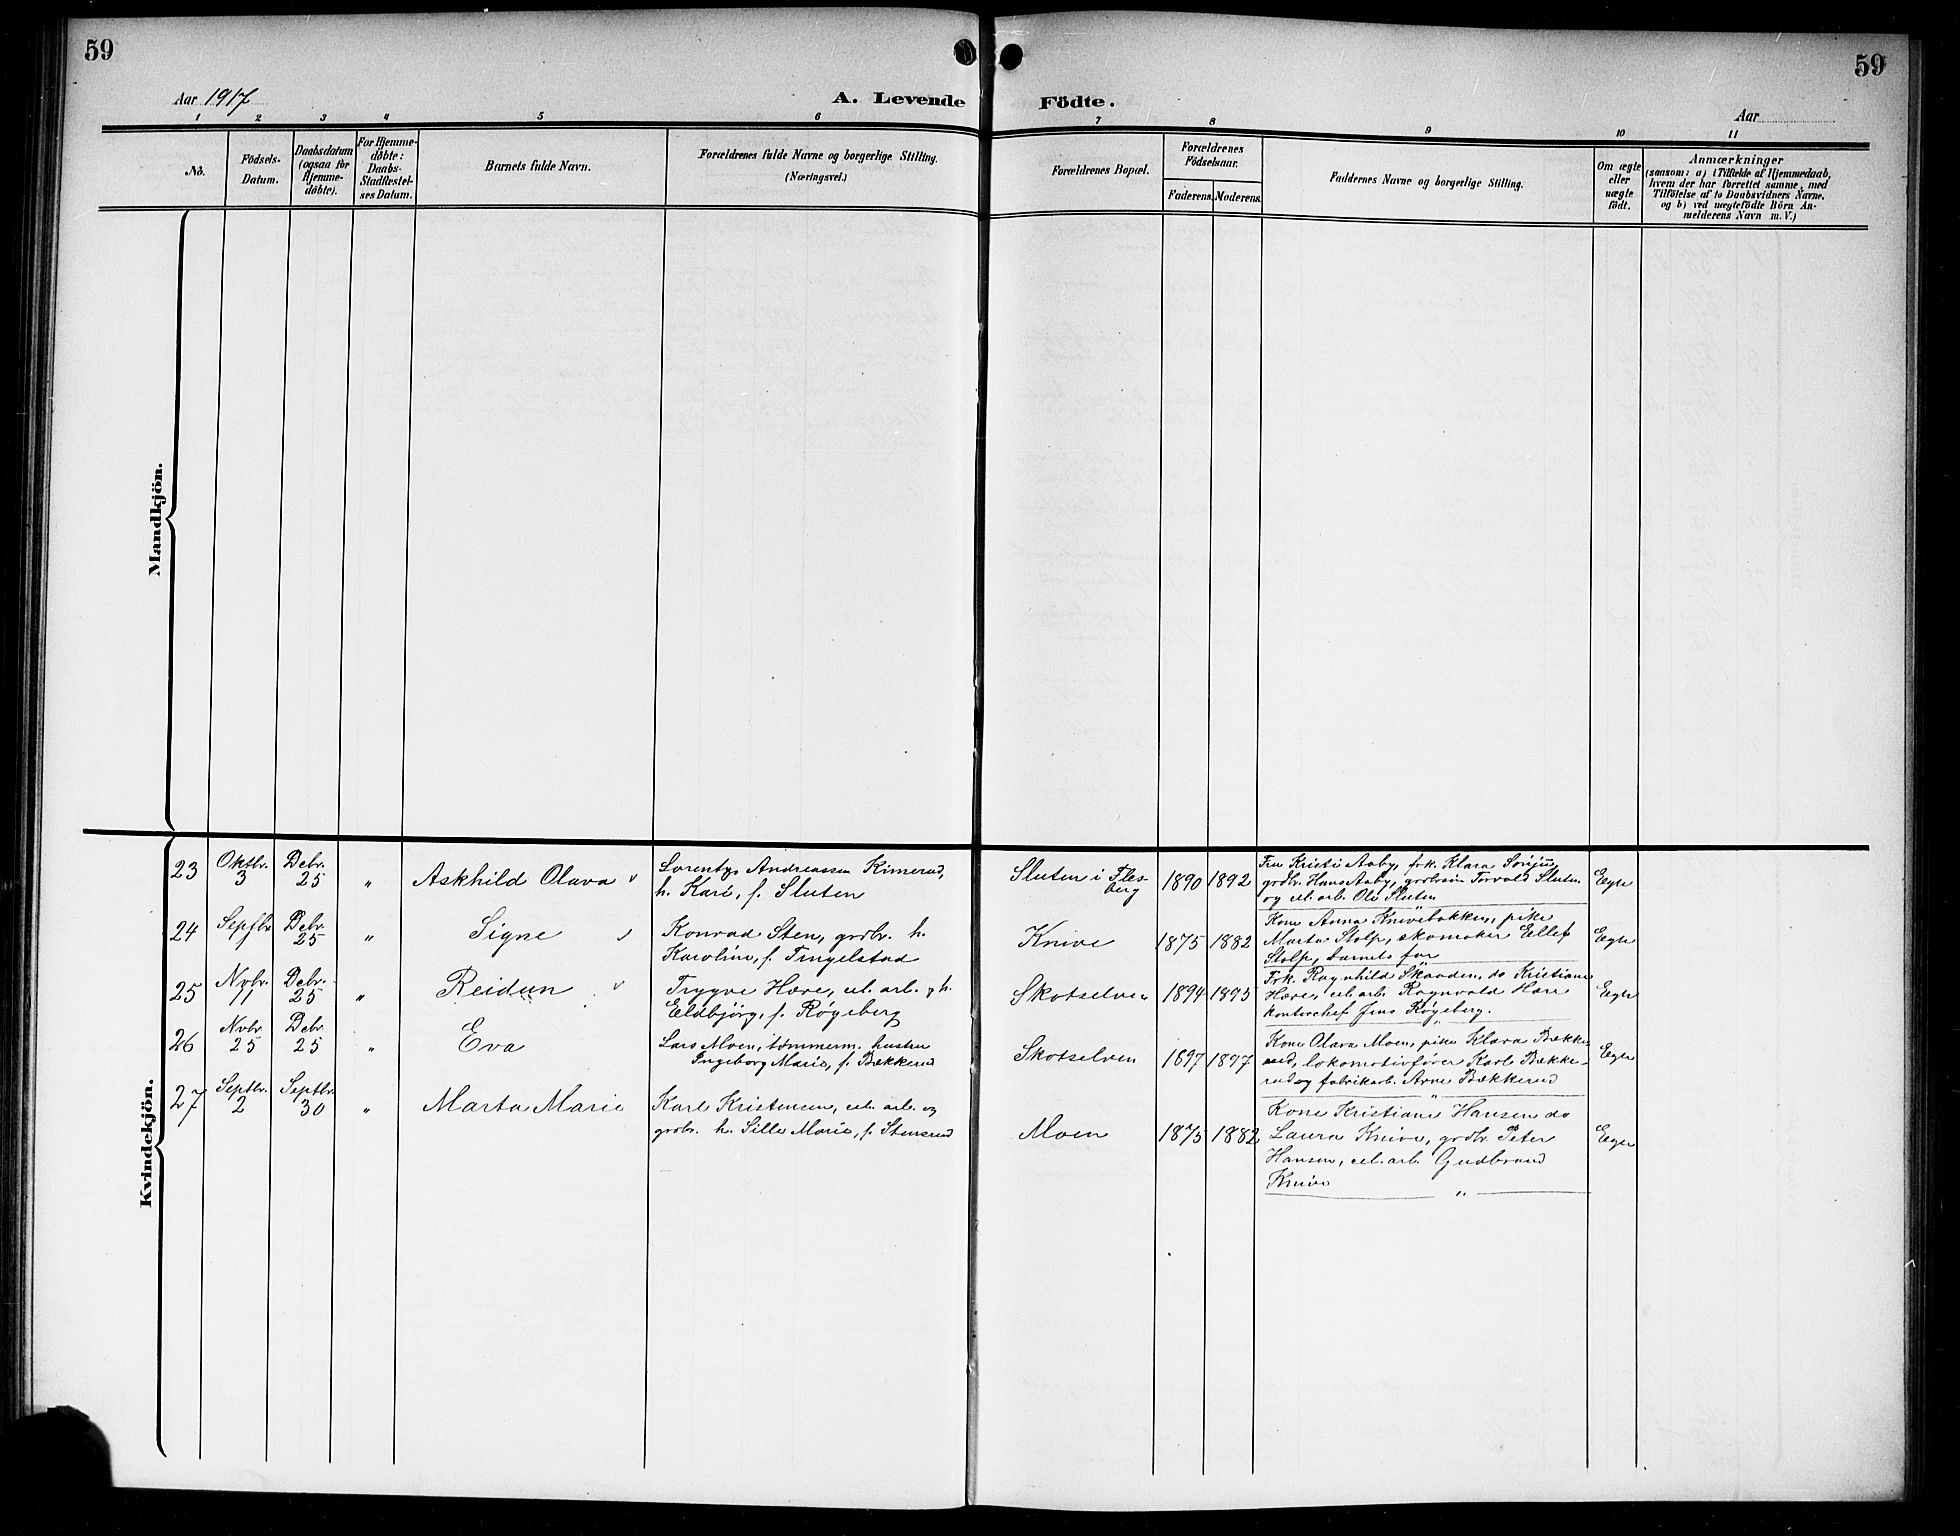 59
59
Aar 1917
A. Levende Födte.
Aar
1 2 3 4 5 6 7 8 9 10 11
No.
Födsels-
Datum.
Daabsdatum
(ogsaa for
Hjemme-
döbte).
For Hjemme-
döbte:
Daabs-
Stadfæstel-
ses Datum.
Barnets fulde Navn.
Forældrenes fulde Navne og borgerlige Stilling.
(Næringsvei.)
Forældrenes Bopæl.
Forældrenes
Födselsaar.
Faderens. Moderens.
Faddernes Navne og borgerlige Stilling.
Om ægte
eller
uægte
födt.
Anmærkninger
(saasom: a) i Tilfælde af Hjemmedaab,
hvem der har forrettet samme, med
Tilföielse af to Daabsvidners Navne,
og b) ved uægtefödte Börn An-
melderens Navn m. V.)
Mandkjön.
Kvindekjön.
23 Oktbr. 3 Debr. 25 " Askhild Olava
Lorentz Andreassen Kimerud,
h. Kari, f. Sluten
Sluten i Fles-
berg
1890 1892
Fru Kristi Aaby, frk. Klara
grdbr. Hans Aaby, grdbrsön Torvald Sluten
og cel. arb. Ole Sluten
Egte
24 Septbr. Debr. 25 " Signe
Konrad Sten, grdbr. h.
Karoline, f. Tingelstad
Knive
1875 1882
Kone Anna Knivebakken, pike
Marta Stolp, skomaker Ellef
Stolp, barnets far
Egte
25 Nvbr. 11 Debr. 25 " Reidun
Trygve Hære, cel. arb. h.
Eldbjörg, f. Røgeberg
Skotselven
1894 1895
Frk. Ragnhild Skaaden, do Kristiane
Hære, cel. arb. Ragnvald Hære
kontorchef Jens Røgeberg.
Egte
26 Nvbr. 25 Debr. 25 " Eva
Lars Moen, tømmerm. hustru
Ingeborg Marie, f. Bækkerud
Skotselven
1897 1897
Kone Olava Moen, pike Klara Bække-
rud, lokomotivfører Karl Bække-
rud og fabrikarb. Arne Bækkerud
Egte
27 Septbr. 2 Septbr. 30 " Marta Marie
Karl Kristensen, cel. arb. og
grdbr. h. Sille Marie, f. Stensrud
Moen
1875 1882
Kone Kristiane Hansen do
Laura Knive, grdbr. Peter
Hansen, cel. arb. Gudbrand
Knive
"
Egte